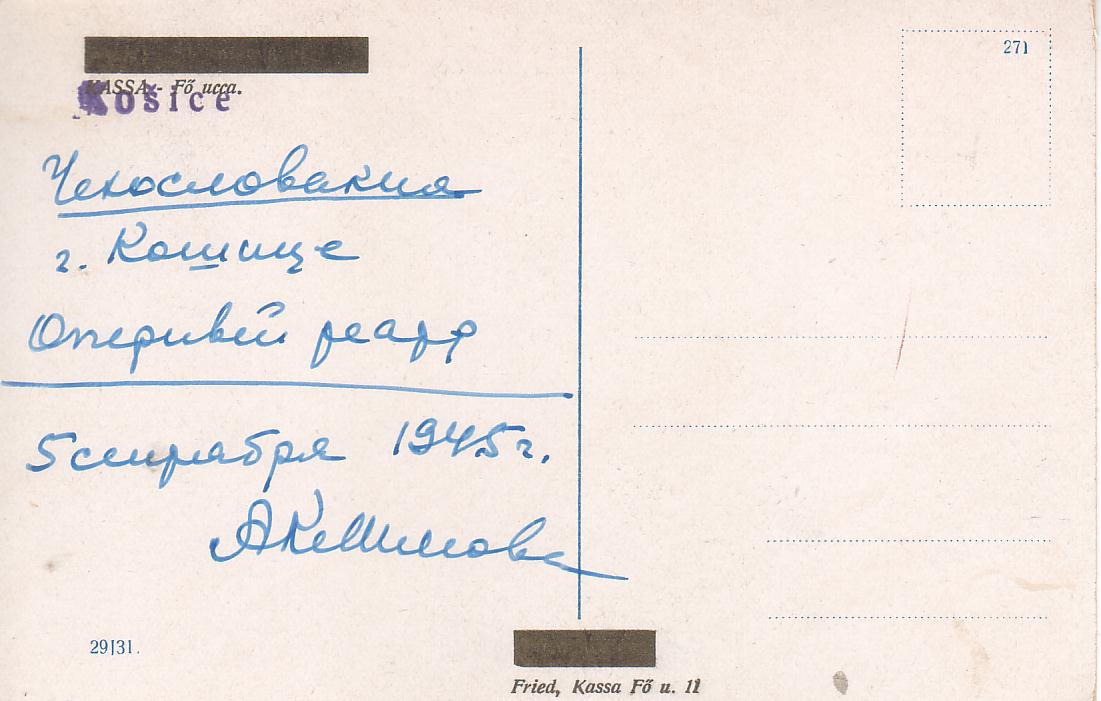 271
KASSA - Fő ucca.
Košice
Чехословакия
г. Кошице
Оперный театр
5 сентября 1945 г.
29|31.
Fried, Kassa Fő u. 11